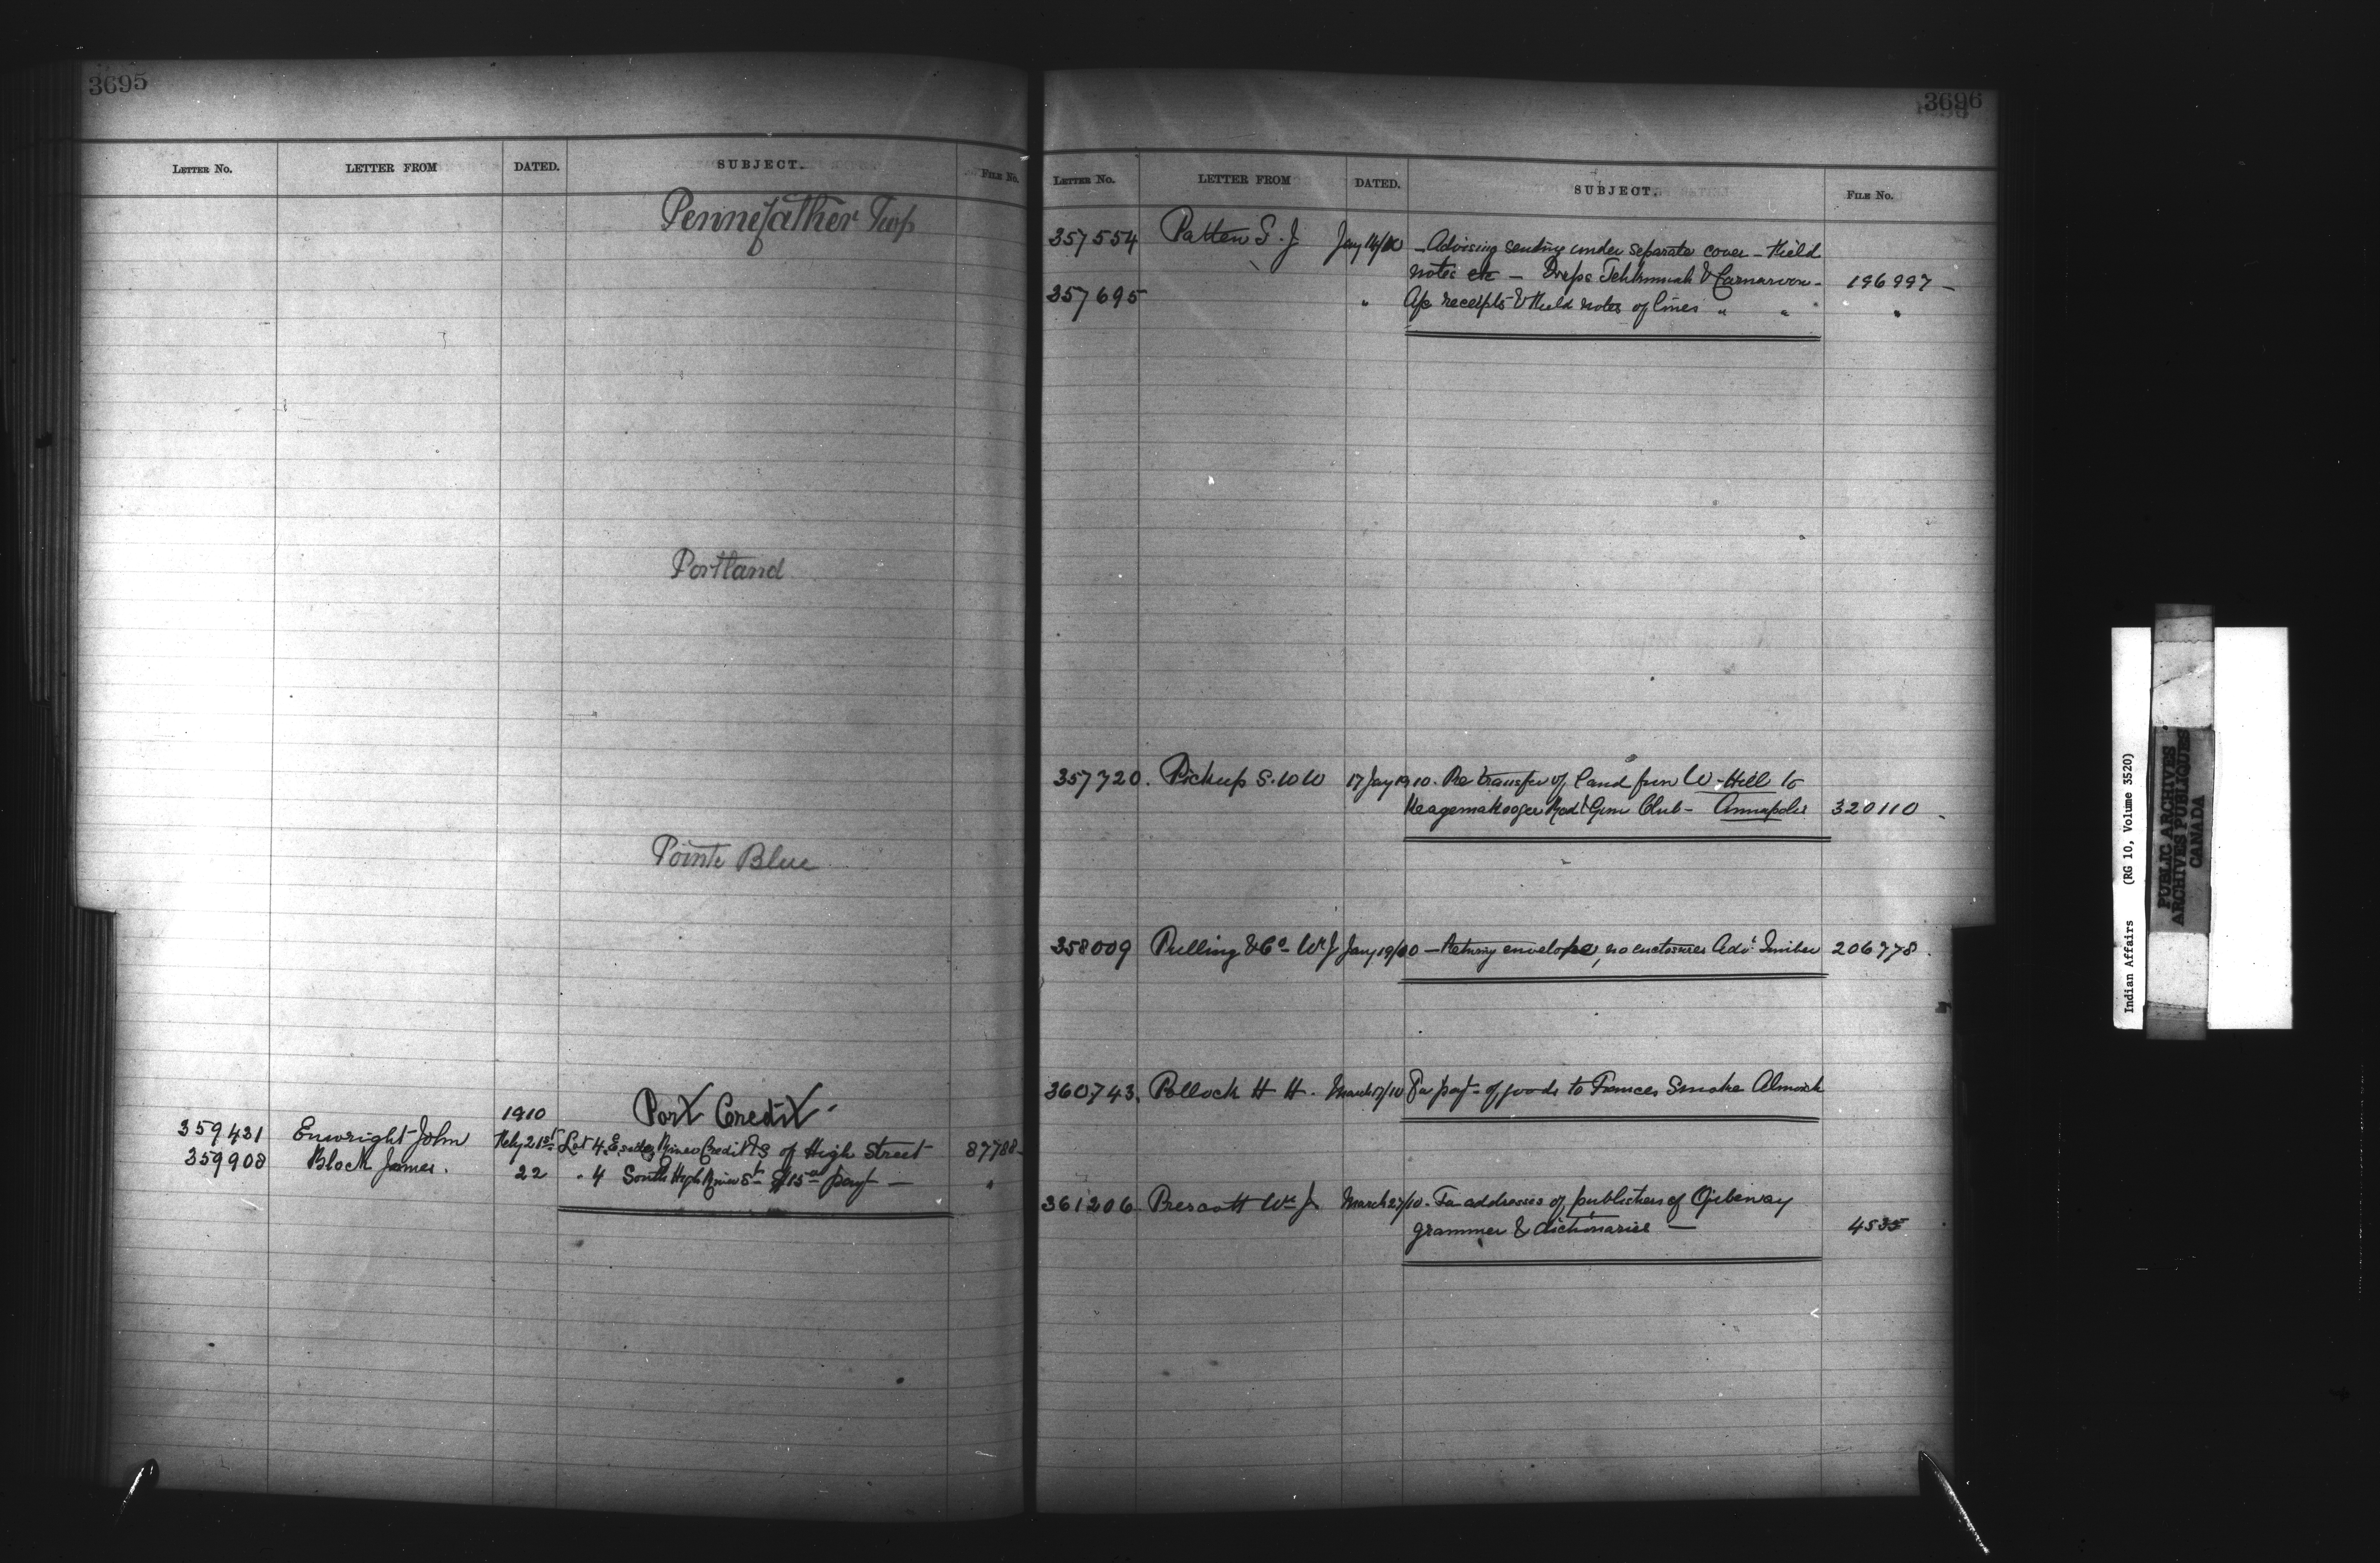 3695
LETTER NO. LETTER FROM DATED. SUBJECT. FILE NO.
Pennefather Twp
Portland
Pointe Blue
1910 Port Credit
359431 Enwright John Feby 21st Lot 4 E side River Credit & S of High Street 87788
359908 Block James. 22 " 4 South High St $15 payt — "
3696
LETTER NO. LETTER FROM DATED. SUBJECT. FILE NO.
357554 Patten S. J Jany 14/10 — Advising sending under separate cover — Field
notes etc — Twps Tehkummah & Carnarvon — 196997 —
357695 " receipts & Field notes of lines " " "
357720. Pickup S. W W 17 Jany 1910. Re transfer of land from W. Hill to
Rod & Gun Club — Annapolis 320110
358009 Pulling & Co — Wm J Jany 19/10 — Retung envelope, no enclosures Advt Timber 206778.
360743. Pollock H H. March 17/10 For payt of goods to Frances Smoke Alnwick
361206 Prescott Wm J. March 27/10. For addresses of publishers of Ojibeway
grammer & dictionaries — 4535
Indian Affairs (RG 10, Volume 3520)
PUBLIC ARCHIVES
ARCHIVES PUBLIQUES
CANADA